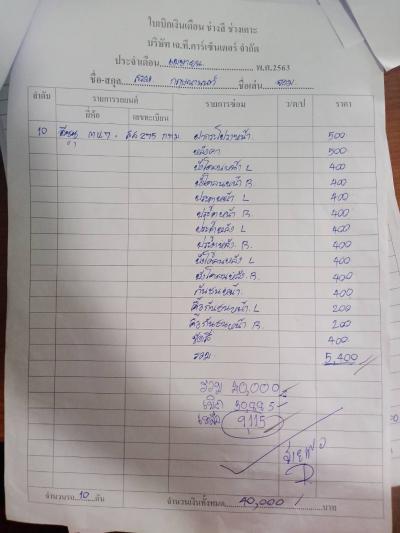 ใบเบิกเงินเดือน ช่างสี ช่างเคาะ
บริษัท เฉ.ที.คาร์เซ็นเตอร์ จำกัด
ประจำเดือน เมษายน พ.ศ.2563
ชื่อ-สกุล ชื่อเล่น
ลำดับ รายการรถยนต์ รายการซ่อม ว/ด/ป ราคา
ยี่ห้อ เลขทะเบียน
10 ฝากระโปรงหน้า 500
หลังคา 500
บังโคลนหน้า L 400
บังโคลนหน้า R. 400
ประตูหน้า L 400
ประตูหน้า R 400
ประตูหลัง L 400
ประตูหลัง R. 400
บังโคลนหลัง L 400
บังโคลนหลัง R. 400
กันชนหน้า 400
คิ้วกันชนหน้า L 200
คิ้วกันชนหน้า R. 200
400
รวม 5,400
รวม 40,000
เบิก 30885
เหลือ 9,115
จำนวนรถ 10 คัน จำนวนเงินทั้งหมด 40,000 บาท